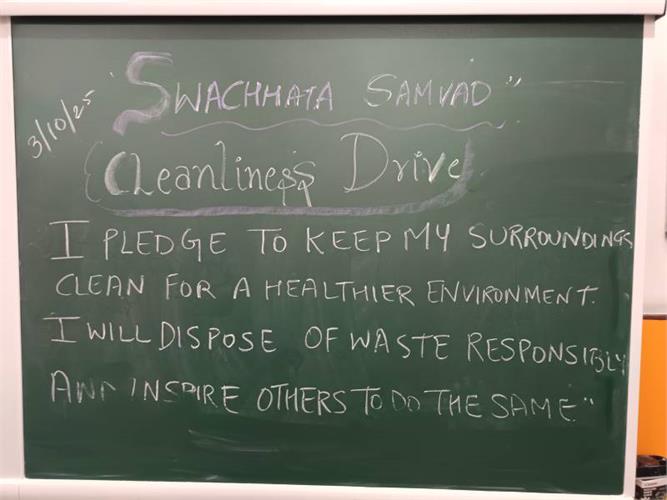 3/10/25
"SWACHHATA SAMVAD"
Cleanliness Drive
I PLEDGE TO KEEP MY SURROUNDINGS
CLEAN FOR A HEALTHIER ENVIRONMENT.
I WILL DISPOSE OF WASTE RESPONSIBLY
AND INSPIRE OTHERS TO DO THE SAME"